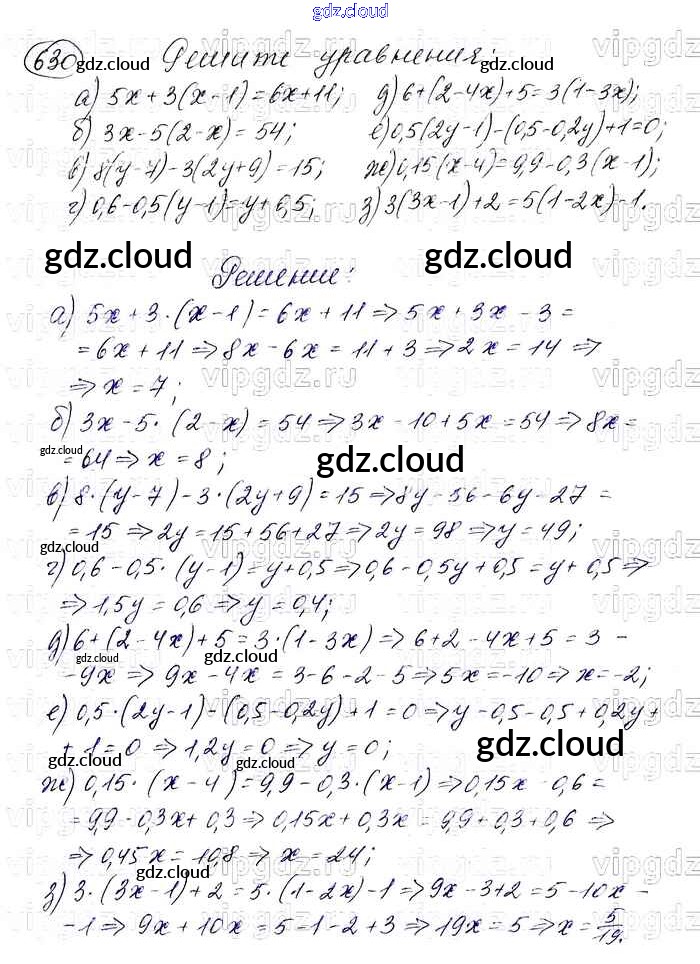 gdz.cloud
630 Решите уравнения:
а) 5x+3(x-1)=6x+11; д) 6+(2-4x)+5=3(1-3x);
б) 3x-5(2-x)=54; е) 0,5(2y-1)-(0,5-0,2y)+1=0;
в) 8(y-7)-3(2y+9)=15; ж) 0,15(x-4)=9,9-0,3(x-1);
г) 0,6-0,5(y-1)=y+0,5; з) 3(3x-1)+2=5(1-2x)-1.
gdz.cloud gdz.cloud
Решение:
а) 5x+3·(x-1)=6x+11⇒5x+3x-3=
=6x+11⇒8x-6x=11+3⇒2x=14⇒
⇒x=7;
б) 3x-5·(2-x)=54⇒3x-10+5x=54⇒8x=
=64⇒x=8;
gdz.cloud
в) 8·(y-7)-3·(2y+9)=15⇒8y-56-6y-27=
=15⇒2y=15+56+27⇒2y=98⇒y=49;
г) 0,6-0,5·(y-1)=y+0,5⇒0,6-0,5y+0,5=y+0,5⇒
⇒1,5y=0,6⇒y=0,4;
д) 6+(2-4x)+5=3·(1-3x)⇒6+2-4x+5=3-
-9x⇒9x-4x=3-6-2-5⇒5x=-10⇒x=-2;
е) 0,5·(2y-1)-(0,5-0,2y)+1=0⇒y-0,5-0,5+0,2y+
+1=0⇒1,2y=0⇒y=0;
gdz.cloud
ж) 0,15·(x-4)=9,9-0,3·(x-1)⇒0,15x-0,6=
=9,9-0,3x+0,3⇒0,15x+0,3x=9,9+0,3+0,6⇒
⇒0,45x=10,8⇒x=24;
з) 3·(3x-1)+2=5·(1-2x)-1⇒9x-3+2=5-10x-
-1⇒9x+10x=5-1-2+3⇒19x=5⇒x=5/19.